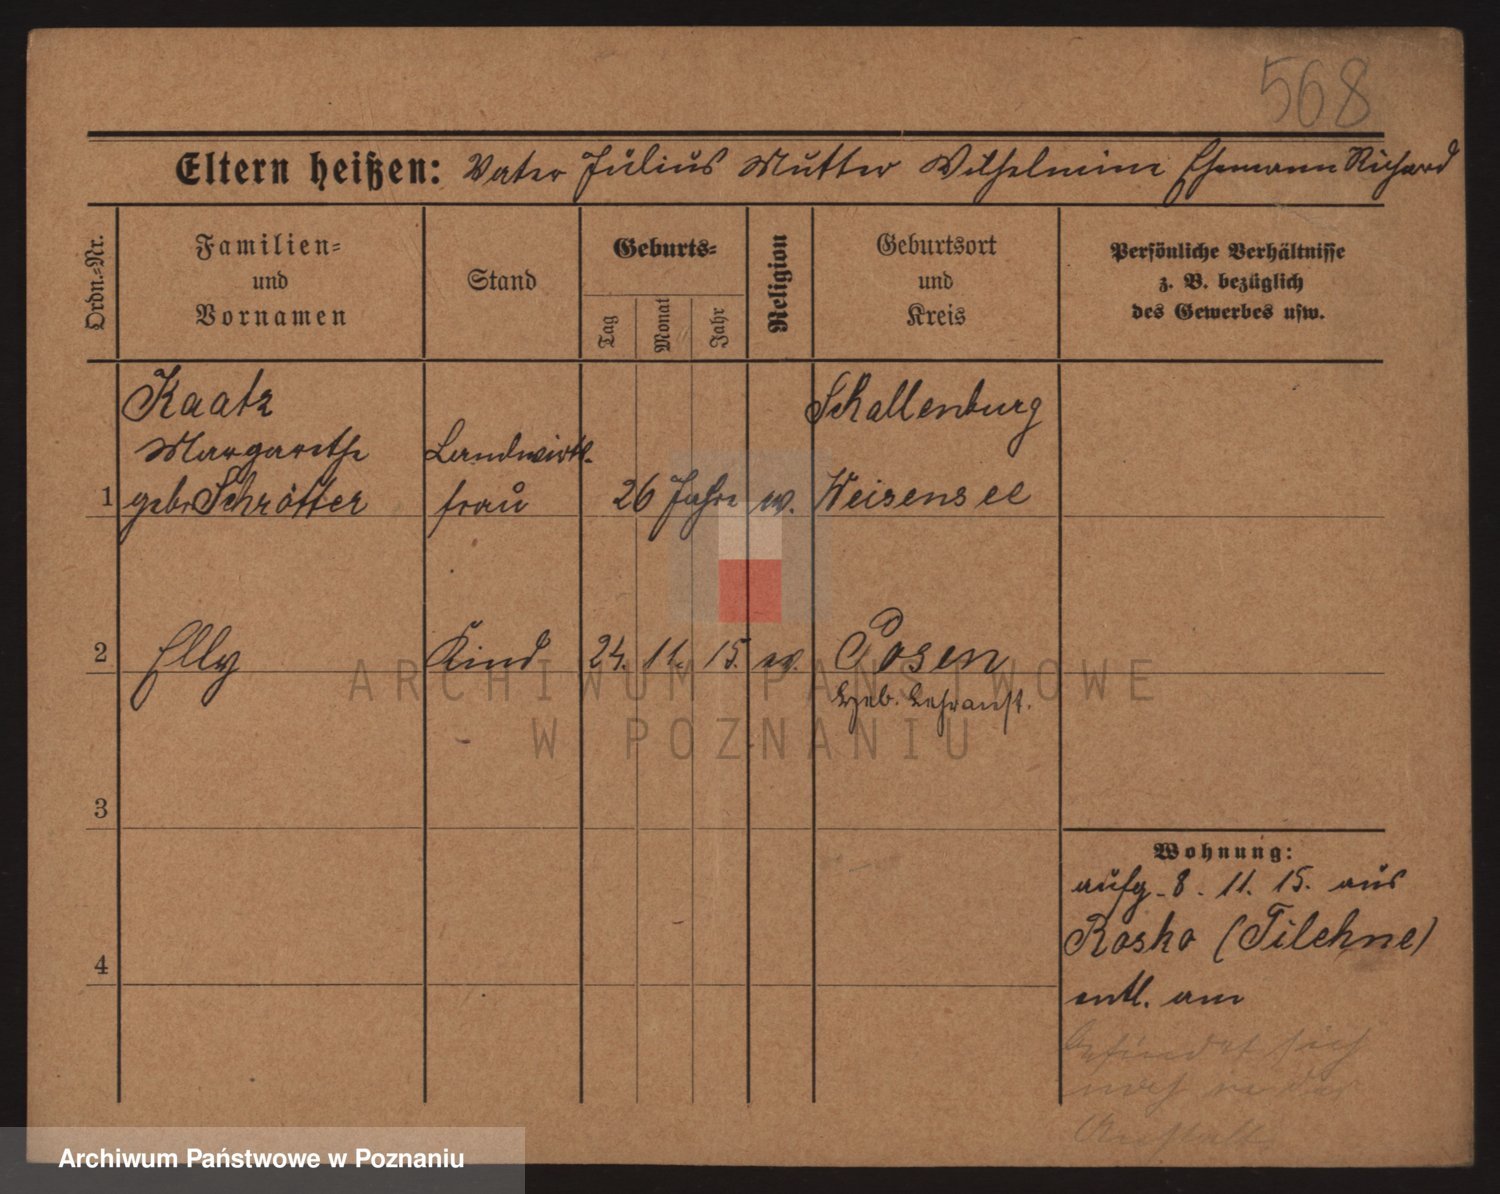 568
Eltern heißen: Vater Julius Mutter Wilhelmine Ehemann Richard
Ordn.=Nr.
Familien=
und
Vornamen
Stand
Geburts=
Tag
Monat
Jahr
Religion
Geburtsort
und
Kreis
Persönliche Verhältnisse
z. B. bezüglich
des Gewerbes usw.
Kaatz
Margarethe
1 geb. Schrötter
Landwirts-
frau
26 Jahre
ev.
Schallenburg
Weisensee
2 Elly Kind 24. 11. 15. ev. Posen
Heb. Lehranst.
ARCHIWUM PAŃSTWOWE
W POZNANIU
3
Wohnung:
aufg. 8. 11. 15. aus
Rosko (Filehne)
4
entl. am
befindet sich
noch in der
Anstalt
Archiwum Państwowe w Poznaniu